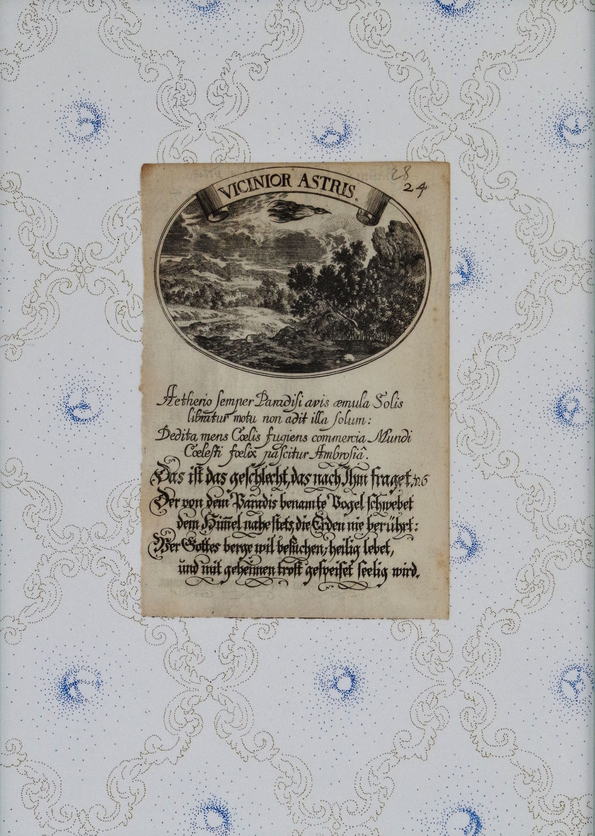 28
24
VICINIOR ASTRIS.
Aetherio semper Paradisi avis æmula Solis
libratur motu non adit illa solum:
Dedita mens Cœlis fugiens commercia Mundi
Cœlesti fœlix pascitur Ambrosiâ.
Das ist das geschlecht, das nach Ihm fraget, v. 6
Der von dem Paradis benamte Vogel schwebet
dem Him̄el nahe stets die Erden nie berührt:
Wer Gottes berge wil besuchen, heilig lebet,
und mit geheimen trost gespeiset seelig wird.